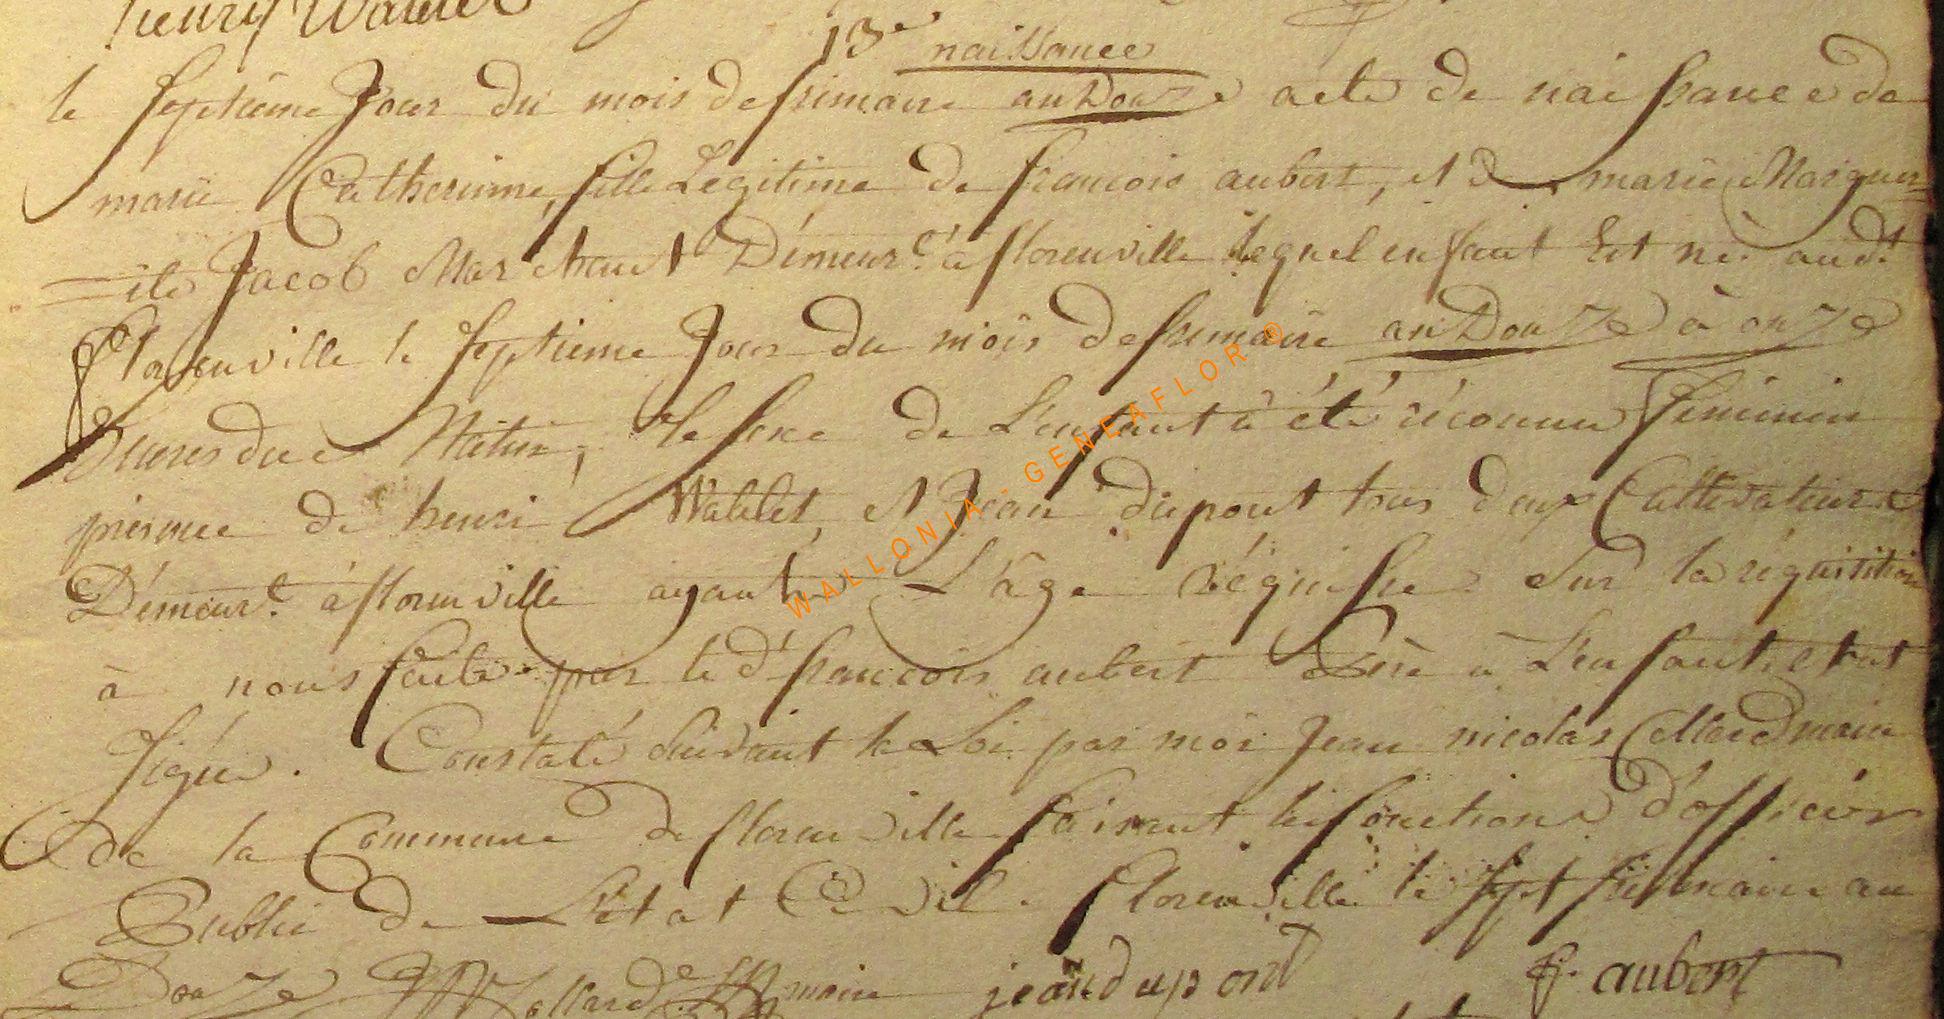 henry Wathlet
13e naissance
le septieme Jour du mois de frimaire an Douze acte de naissance de
marie Catherinne, fille Légitime de francois aubert, et de marie Marguer=
=ite Jacob Marchant Démeurt. à florenville lequel enfant Est né audt.
Florenville le septieme Jour du mois de frimaire an Douze à onze
heures du Matin, le sexe de L'enfant à été réconnu féminin
présence de henri Wathlet, et Jean dupont tous deux Cultivateurs
Démeurt. à florenville ayant L'âge réquise sur la réquisition
à nous faite par le dt francois aubert père à L'enfant, et at
signé. Constaté suivant la Loi par moi Jean nicolas Collard maire
de la Commune de florenville faisant les fonctions d'officier
Public de L'état Civil. Florenville le sept frimaire an
Douze Collard maire jean dupont f. aubert
WALLONIA - GENEAFLOR ®